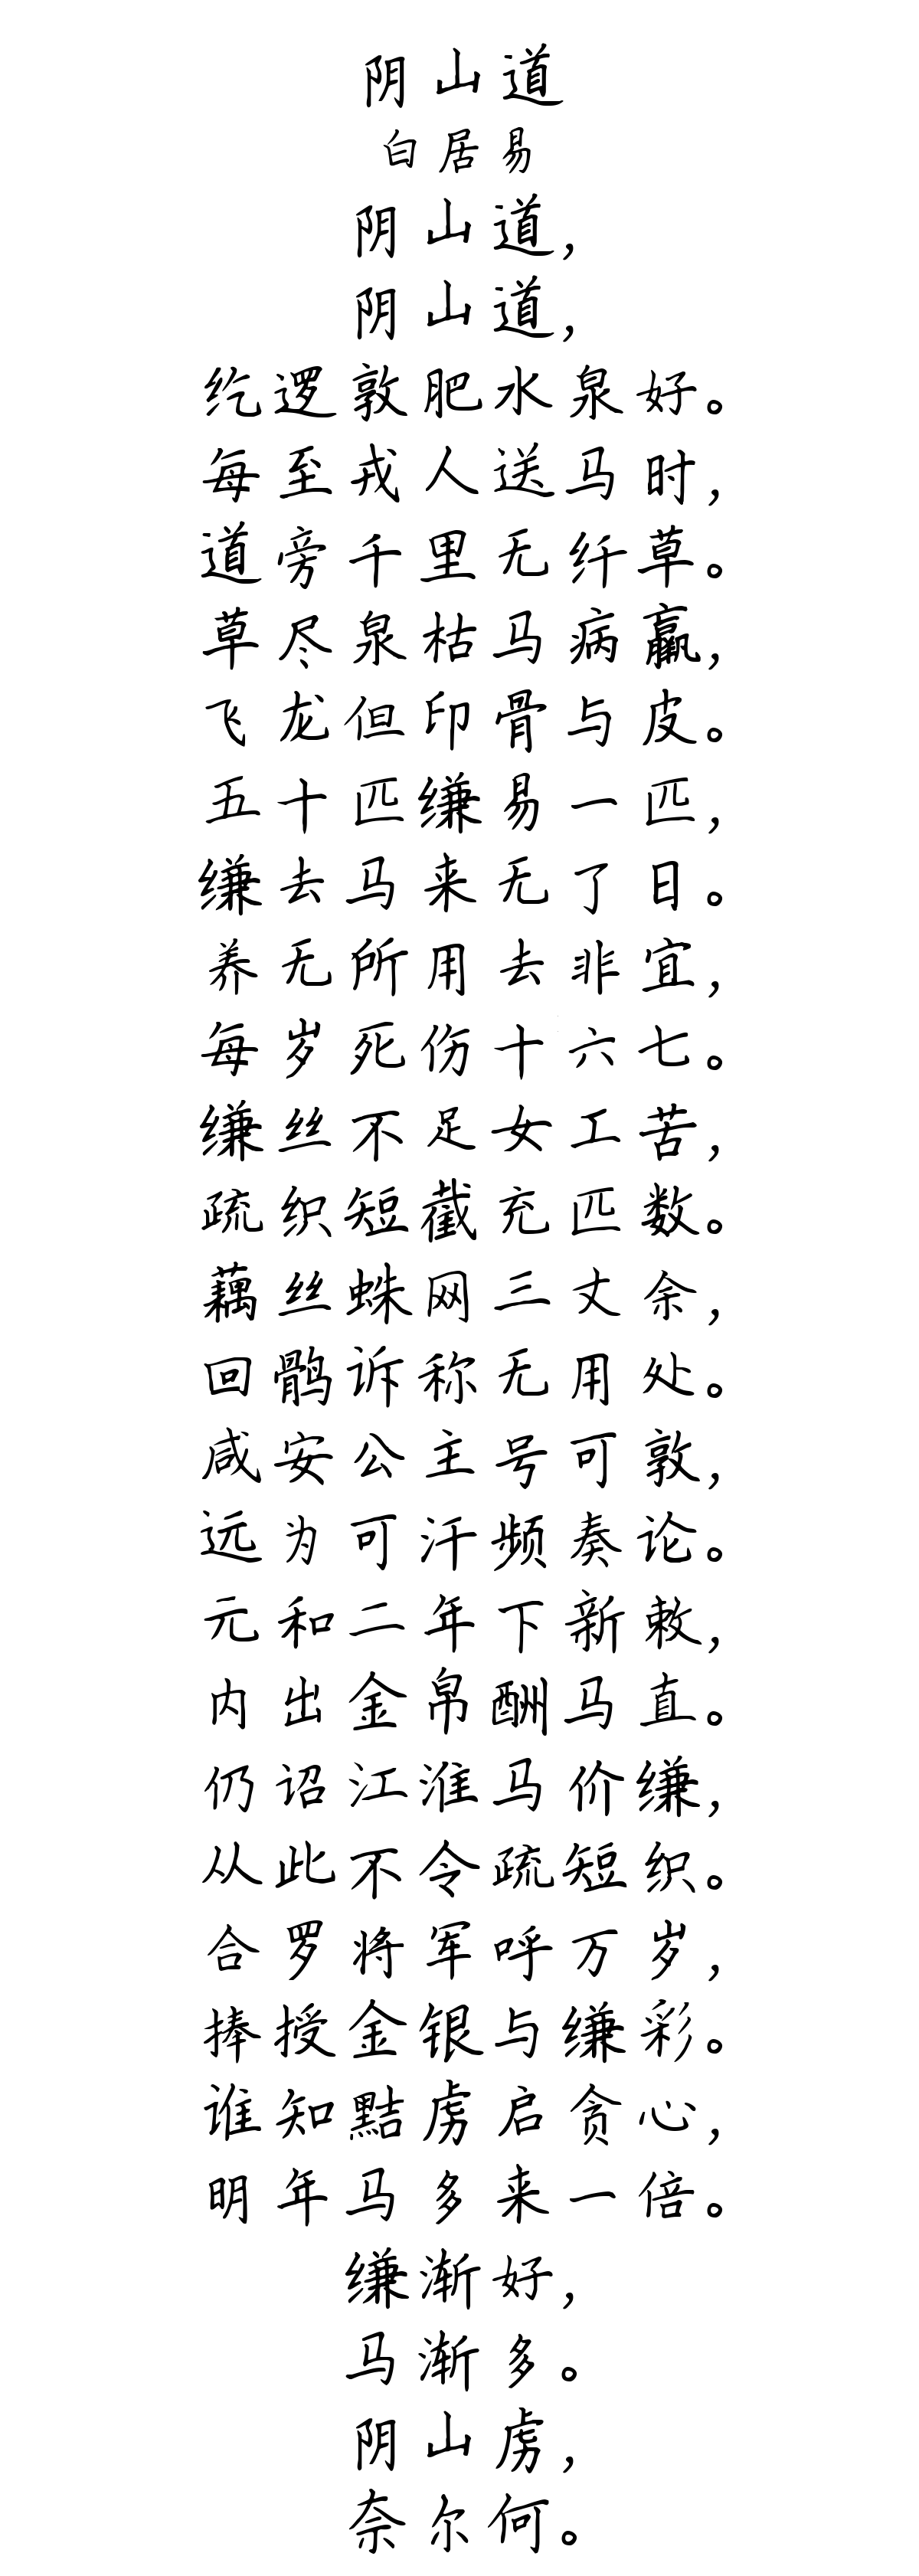 阴山道
白居易
阴山道，
阴山道，
纥逻敦肥水泉好。
每至戎人送马时，
道旁千里无纤草。
草尽泉枯马病羸，
飞龙但印骨与皮。
五十匹缣易一匹，
缣去马来无了日。
养无所用去非宜，
每岁死伤十六七。
缣丝不足女工苦，
疏织短截充匹数。
藕丝蛛网三丈余，
回鹘诉称无用处。
咸安公主号可敦，
远为可汗频奏论。
元和二年下新敕，
内出金帛酬马直。
仍诏江淮马价缣，
从此不令疏短织。
合罗将军呼万岁，
捧授金银与缣彩。
谁知黠虏启贪心，
明年马多来一倍。
缣渐好，
马渐多。
阴山虏，
奈尔何。